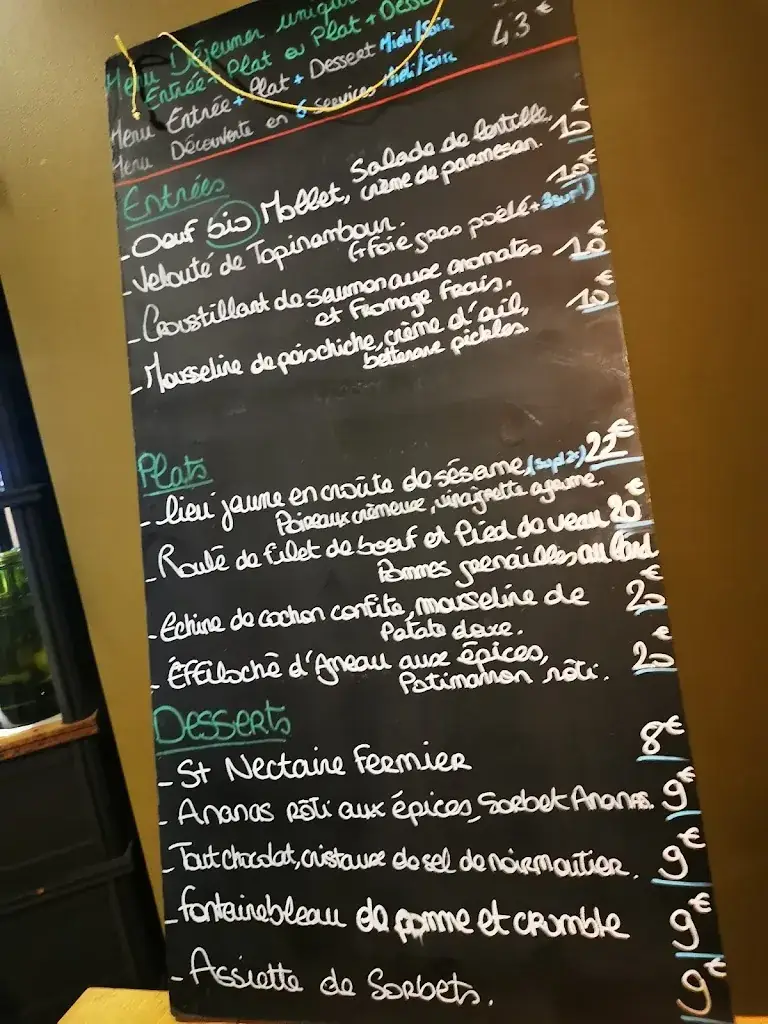 Menu Déjeuner unique
Entrée + Plat ou Plat + Dessert
Menu Entrée + Plat + Dessert Midi/Soir
Menu Découverte en 6 services Midi/Soir 43€
Entrées
- Oeuf bio Mollet, Salade de lentille, 10€
crème de parmesan.
- Velouté de Topinambour. 10€
(+ Foie gras poêlé + 3 supl)
- Croustillant de saumon aux aromates 10€
et fromage frais.
- Mousseline de poischiche, crème d'ail, 10€
betterave pickles.
Plats
- lieu jaune en croûte de sésame (supl 2€) 22€
Poireaux crèmeuse, vinaigrette agrume.
- Roulé de filet de boeuf et Pied de veau 20€
Pommes grenailles au lard
- Echine de cochon confite, mousseline de 20€
Patate doxe.
- Éffiloché d'Agneau aux épices, 20€
Potimarron rôti.
Desserts
- St Nectaire Fermier 8€
- Ananas rôti aux épices, Sorbet Ananas. 9€
- Tout chocolat, cristaux de sel de noirmoutier. 9€
- Fontainebleau de pomme et crumble 9€
- Assiette de Sorbets. 9€